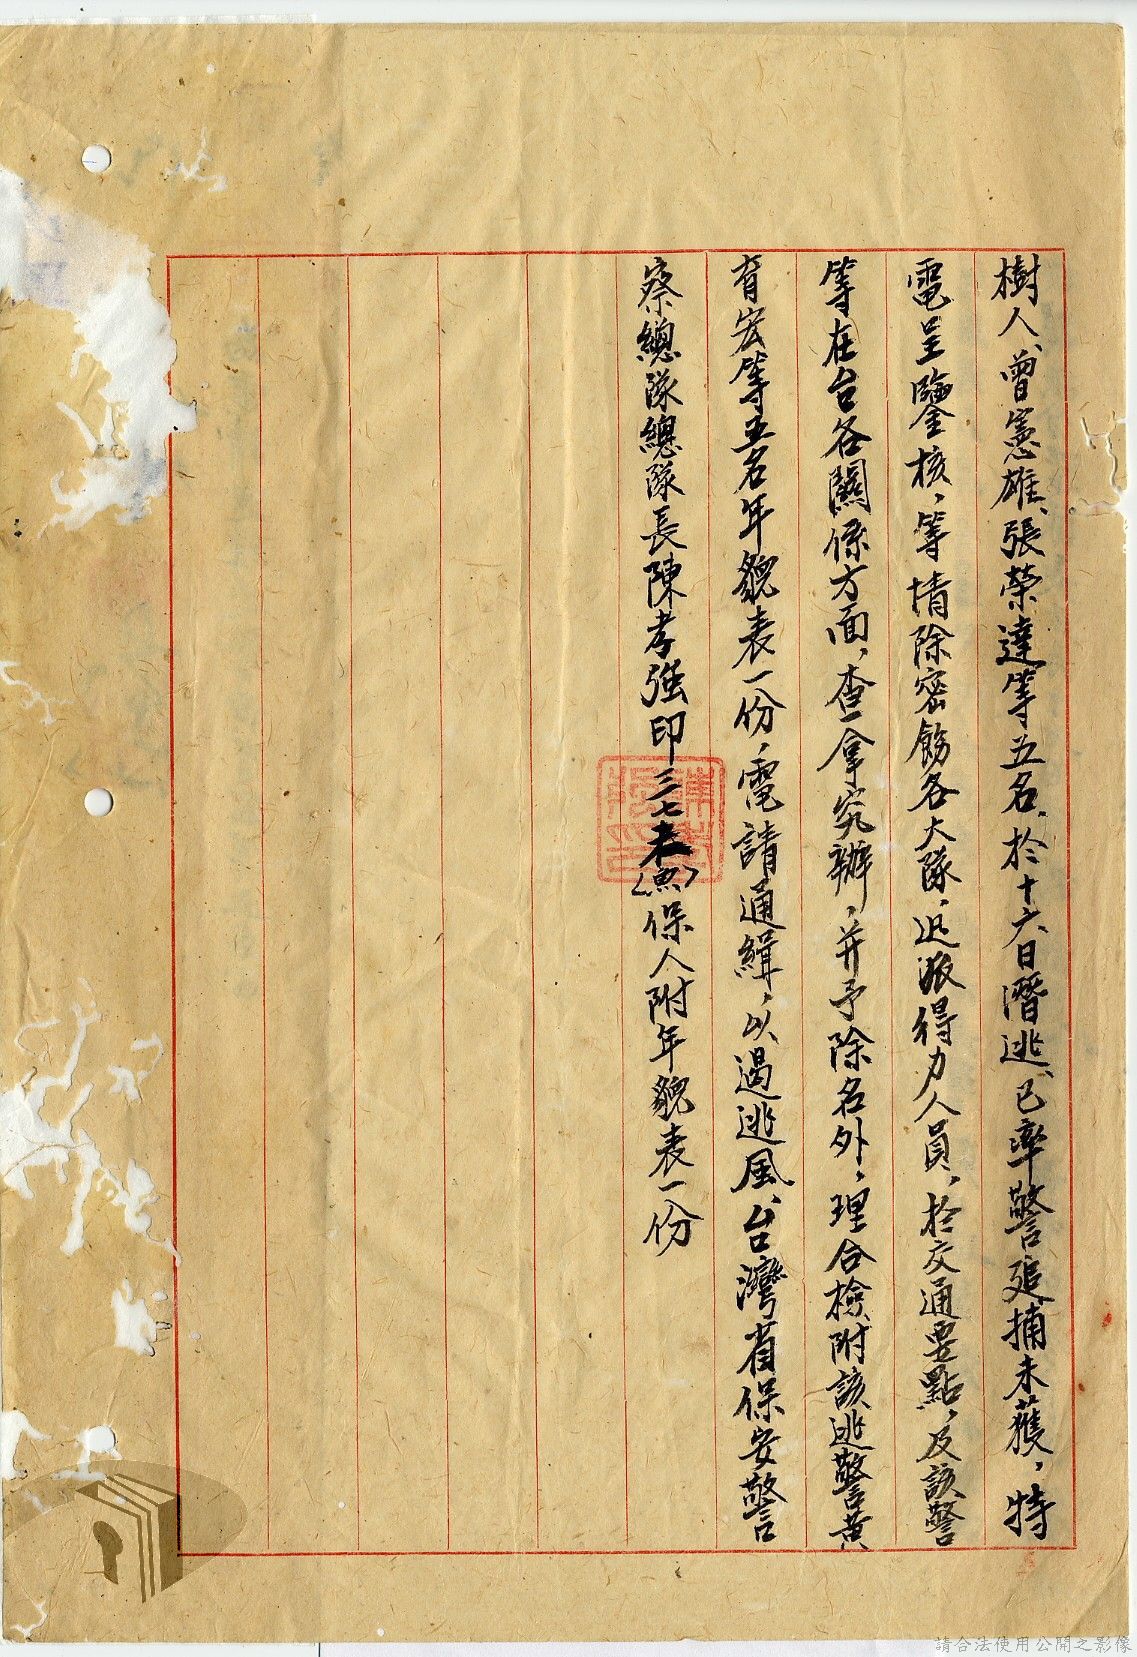 樹人、曾憲雄、張榮達等五名、於十六日潛逃、已率警追捕未獲，特
電呈鑒核，等情除密飭各大隊，迅派得力人員，於交通要點，及該警
等在台各關係方面，查拿究辦，并予除名外，理合檢附該逃警黃
育宏等五名年貌表一份，電請通緝，以遏逃風、台灣省保安警
察總隊總隊長陳孝強印三七未〈魚〉保人附年貌表一份
陳孝強印
請合法使用公開之影像